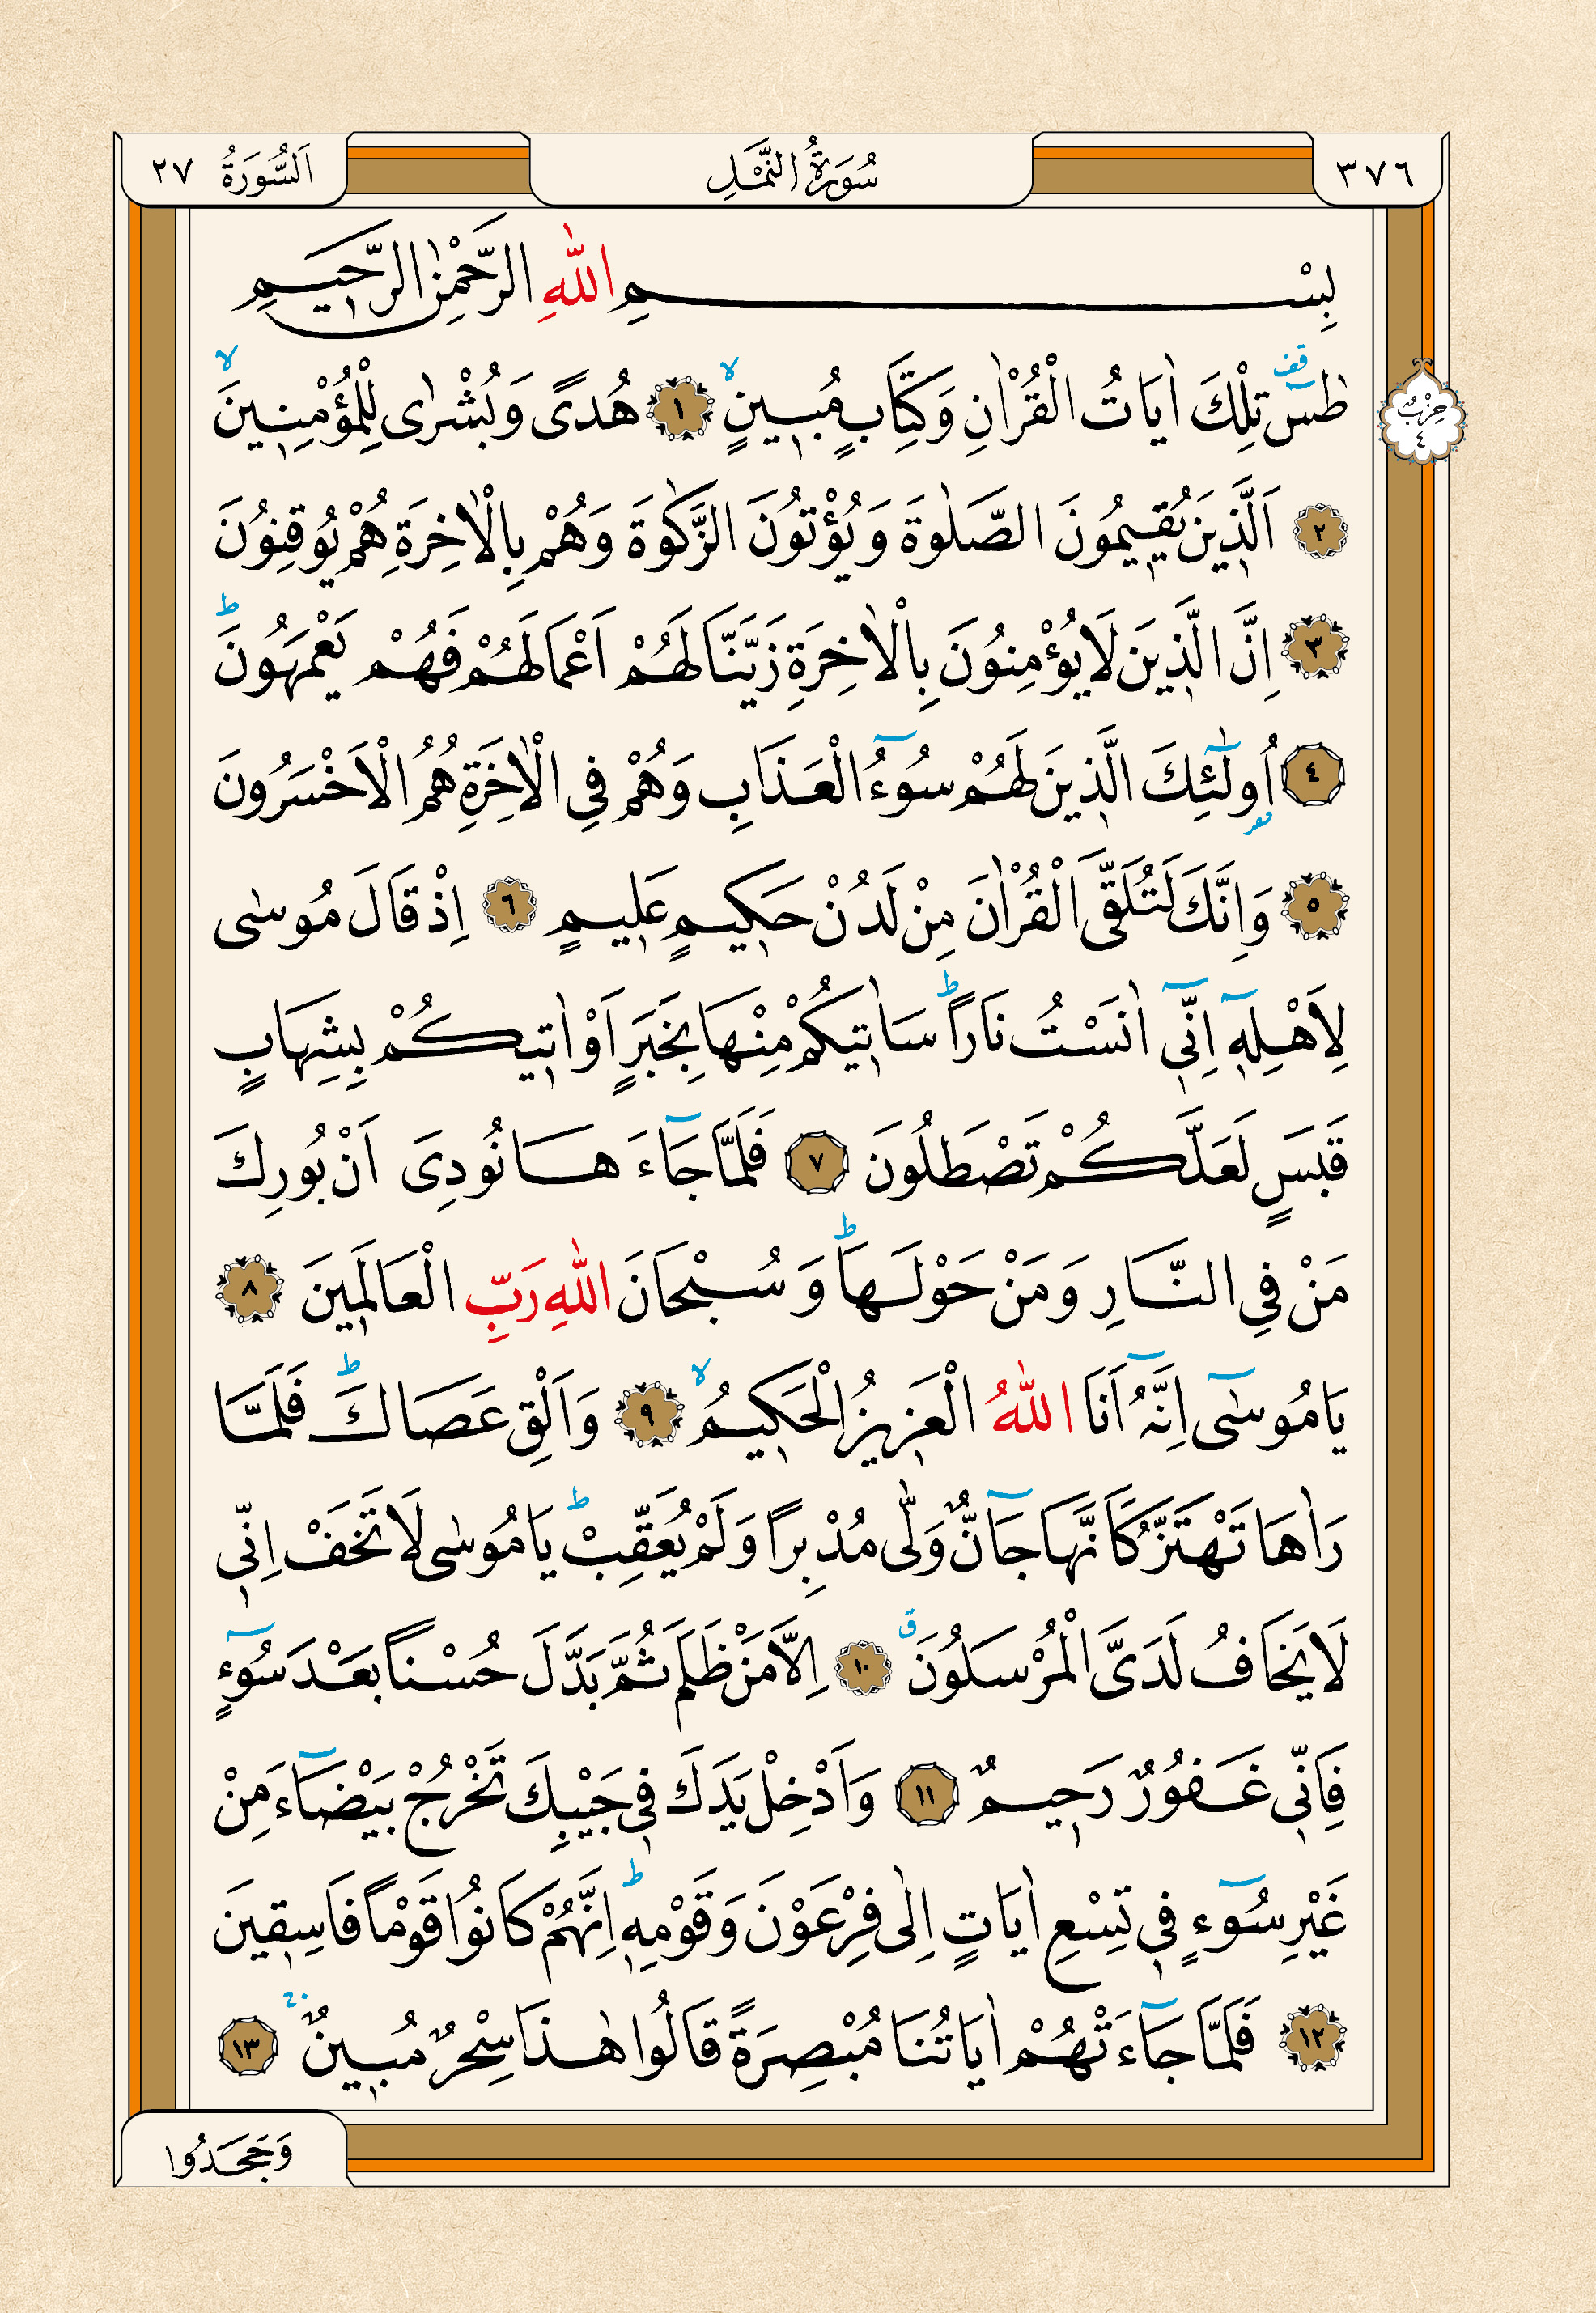 ٣٧٦ سُورَةُ النَّمْلِ اَلسُّورَةُ ٢٧
بِسْمِ اللّٰهِ الرَّحْمٰنِ الرَّحٖيمِ
طٰسٓ قف تِلْكَ اٰيَاتُ الْقُرْاٰنِ وَكِتَابٍ مُبٖينٍۙ ١ هُدًى وَبُشْرٰى لِلْمُؤْمِنٖينَۙ
حِزْبٌ ٤
٢ اَلَّذٖينَ يُقٖيمُونَ الصَّلٰوةَ وَيُؤْتُونَ الزَّكٰوةَ وَهُمْ بِالْاٰخِرَةِ هُمْ يُوقِنُونَ
٣ اِنَّ الَّذٖينَ لَا يُؤْمِنُونَ بِالْاٰخِرَةِ زَيَّنَّا لَهُمْ اَعْمَالَهُمْ فَهُمْ يَعْمَهُونَۜ
٤ اُو۬لٰٓئِكَ الَّذٖينَ لَهُمْ سُٓوءُ الْعَذَابِ وَهُمْ فِي الْاٰخِرَةِ هُمُ الْاَخْسَرُونَ
٥ وَاِنَّكَ لَتُلَقَّى الْقُرْاٰنَ مِنْ لَدُنْ حَكٖيمٍ عَلٖيمٍ ٦ اِذْ قَالَ مُوسٰى
لِاَهْلِهٖٓ اِنّٖٓي اٰنَسْتُ نَارًاۜ سَاٰتٖيكُمْ مِنْهَا بِخَبَرٍ اَوْ اٰتٖيكُمْ بِشِهَابٍ
قَبَسٍ لَعَلَّكُمْ تَصْطَلُونَ ٧ فَلَمَّا جَٓاءَهَا نُودِيَ اَنْ بُورِكَ
مَنْ فِي النَّارِ وَمَنْ حَوْلَهَاۜ وَسُبْحَانَ اللّٰهِ رَبِّ الْعَالَمٖينَ ٨
يَا مُوسٰٓى اِنَّهُٓ اَنَا اللّٰهُ الْعَزٖيزُ الْحَكٖيمُۙ ٩ وَاَلْقِ عَصَاكَۜ فَلَمَّا
رَاٰهَا تَهْتَزُّ كَاَنَّهَا جَٓانٌّ وَلّٰى مُدْبِرًا وَلَمْ يُعَقِّبْۜ يَا مُوسٰى لَا تَخَفْ اِنّٖي
لَا يَخَافُ لَدَيَّ الْمُرْسَلُونَ ق ١٠ اِلَّا مَنْ ظَلَمَ ثُمَّ بَدَّلَ حُسْنًا بَعْدَ سُٓوءٍ
فَاِنّٖي غَفُورٌ رَحٖيمٌ ١١ وَاَدْخِلْ يَدَكَ فٖي جَيْبِكَ تَخْرُجْ بَيْضَٓاءَ مِنْ
غَيْرِ سُٓوءٍ فٖي تِسْعِ اٰيَاتٍ اِلٰى فِرْعَوْنَ وَقَوْمِهٖۜ اِنَّهُمْ كَانُوا قَوْمًا فَاسِقٖينَ
١٢ فَلَمَّا جَٓاءَتْهُمْ اٰيَاتُنَا مُبْصِرَةً قَالُوا هٰذَا سِحْرٌ مُبٖينٌۚ ١٣
وَجَحَدُوا